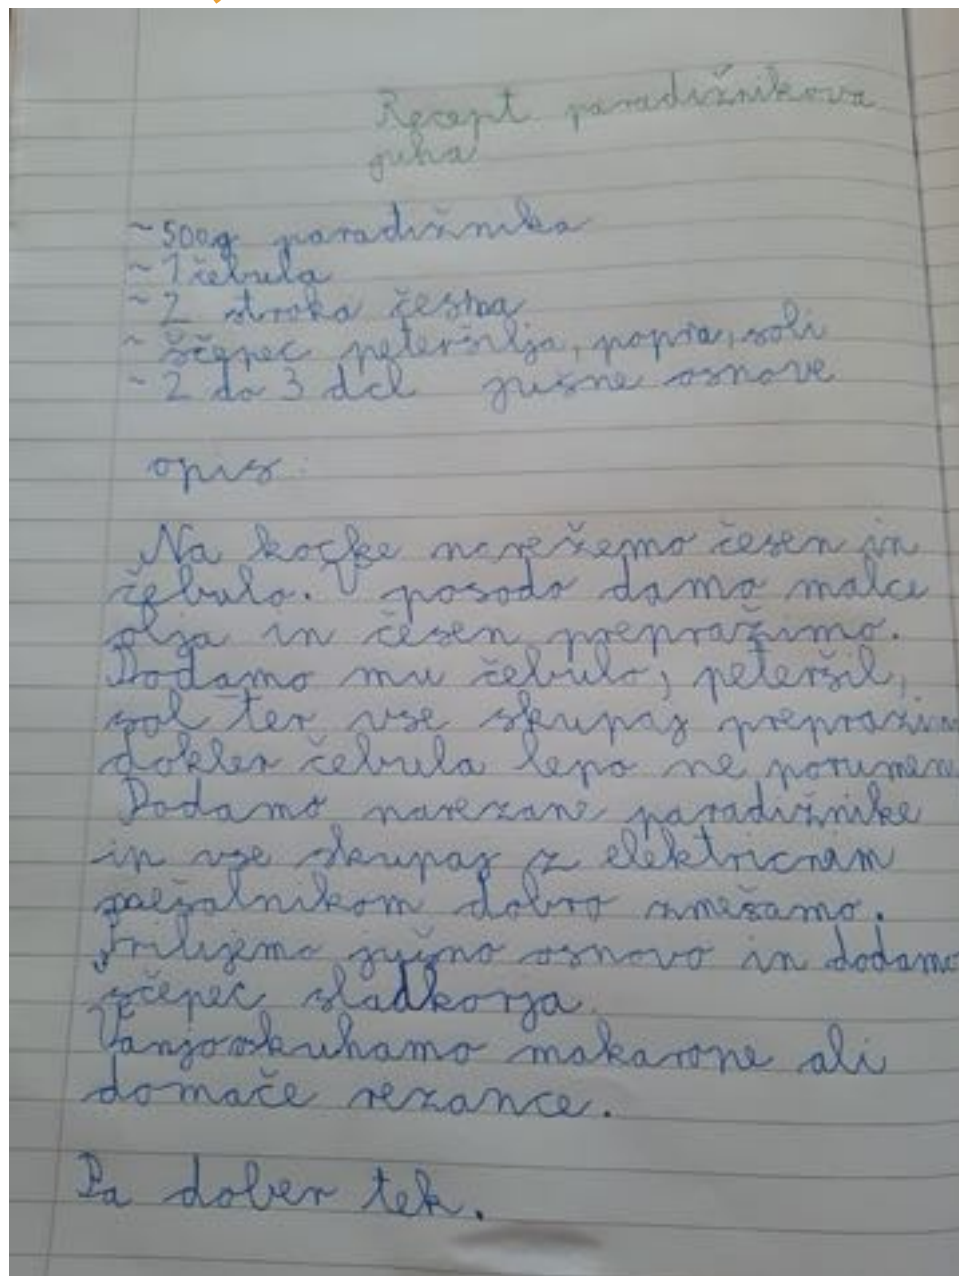 Recept paradižnikova
juha
~ 500g paradižnika
~ 1 čebula
~ 2 stroka česna
~ ščepec peteršilja, popra, soli
~ 2 do 3 dcl jušne osnove
opis:
Na kocke narežemo česen in
čebulo. V posodo damo malce
olja in česen prepražimo.
Dodamo mu čebulo, peteršil,
sol ter vse skupaj prepražim
dokler čebula lepo ne porumene
Dodamo narezane paradižnike
in vse skupaj z električnim
mešalnikom dobro zmešamo.
Prilijemo jušno osnovo in dodamo
ščepec sladkorja.
Vanjo skuhamo makarone ali
domače rezance.
Pa dober tek.